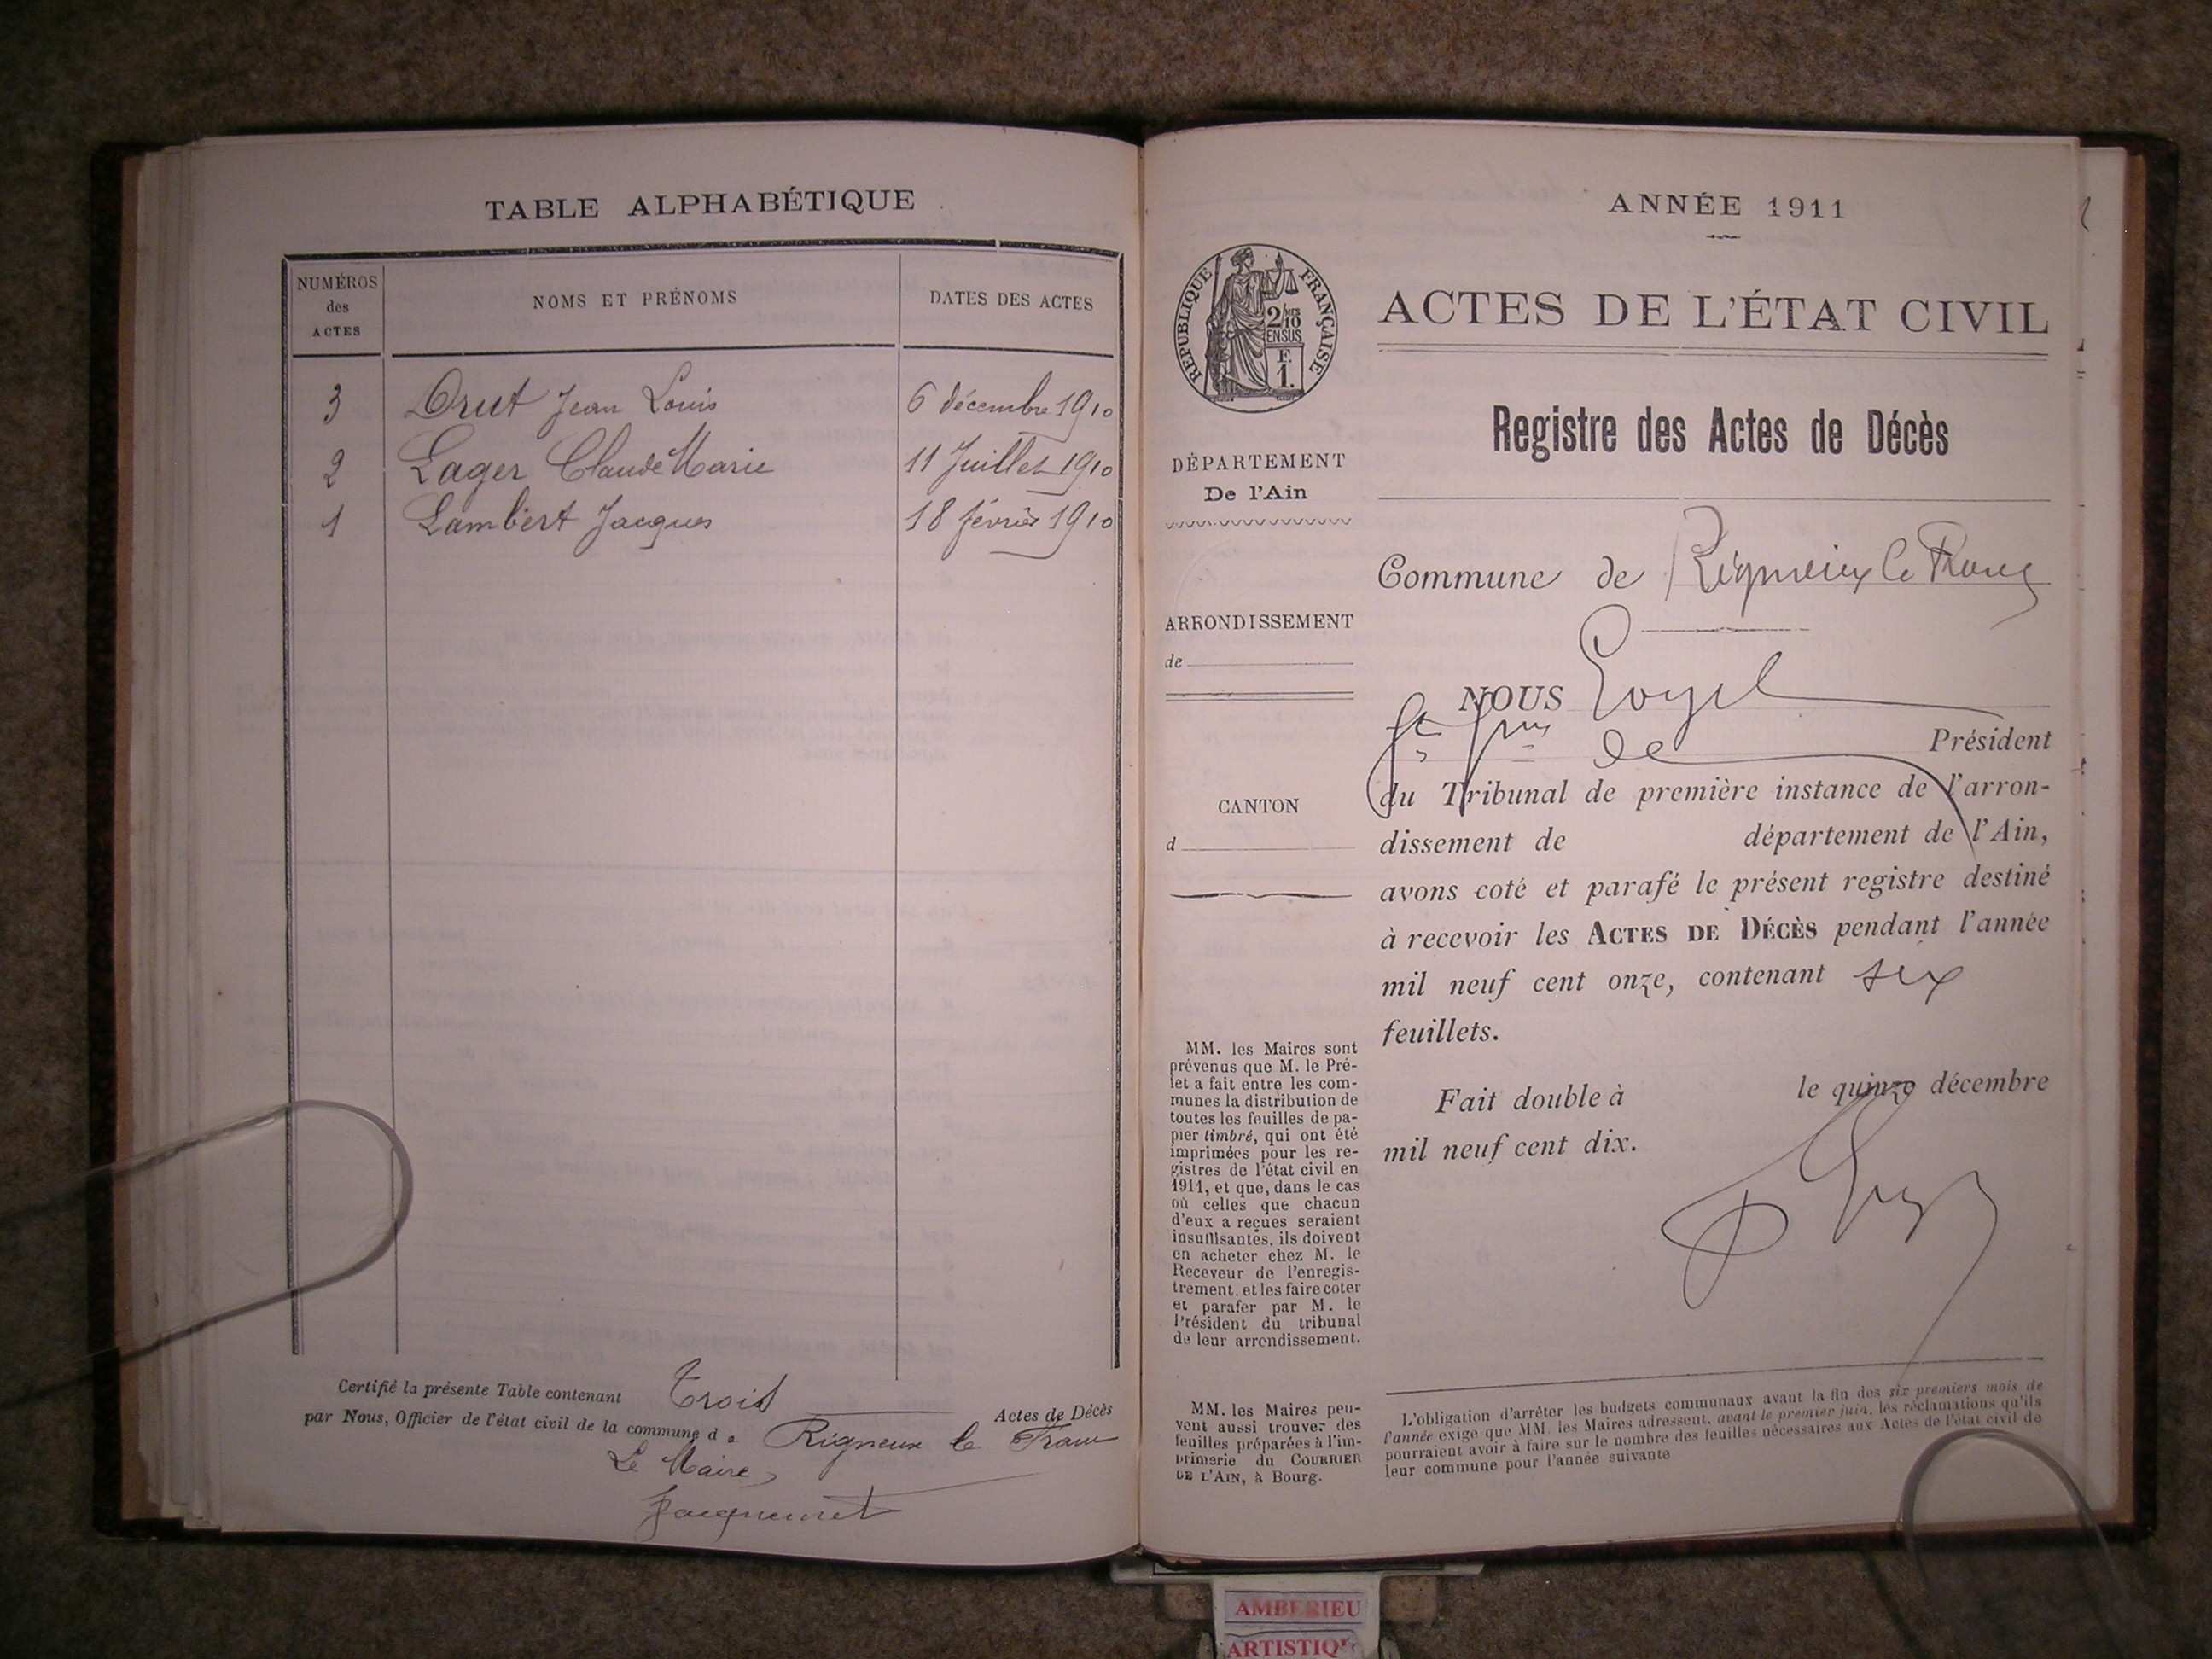 TABLE ALPHABÉTIQUE
NUMÉROS
des
ACTES
NOMS ET PRÉNOMS
DATES DES ACTES
3 Drut Jean Louis 6 décembre 1910
2 Lager Claude Marie 11 Juillet 1910
1 Lambert Jacques 18 février 1910
Certifié la présente Table contenant trois Actes de Décès
par Nous, Officier de l'état civil de la commune de Rigneux le Franc
Le Maire,
ANNÉE 1911
RÉPUBLIQUE FRANÇAISE
2/10
EN SUS
F.
1.
ACTES DE L'ÉTAT CIVIL
Registre des Actes de Décès
DÉPARTEMENT
De l'Ain
ARRONDISSEMENT
de
CANTON
d
Commune de Rigneux le Franc
NOUS
de Président
du Tribunal de première instance de l'arron-
dissement de département de l'Ain,
avons coté et parafé le présent registre destiné
à recevoir les ACTES DE DÉCÈS pendant l'année
mil neuf cent onze, contenant six
feuillets.
Fait double à le quinze décembre
mil neuf cent dix.
MM. les Maires sont
prévenus que M. le Pré-
fet a fait entre les com-
munes la distribution de
toutes les feuilles de pa-
pier timbré, qui ont été
imprimées pour les re-
gistres de l'état civil en
1911, et que, dans le cas
où celles que chacun
d'eux a reçues seraient
insuffisantes, ils doivent
en acheter chez M. le
Receveur de l'enregis-
trement, et les faire coter
et parafer par M. le
Président du tribunal
de leur arrondissement.
MM. les Maires peu-
vent aussi trouver des
feuilles préparées à l'im-
primerie du COURRIER
DE L'AIN, à Bourg.
L'obligation d'arrêter les budgets communaux avant la fin des six premiers mois de
l'année exige que MM. les Maires adressent, avant le premier juin, les réclamations qu'ils
pourraient avoir à faire sur le nombre des feuilles nécessaires aux Actes de l'état civil de
leur commune pour l'année suivante
AMBERIEU
ARTISTIQ